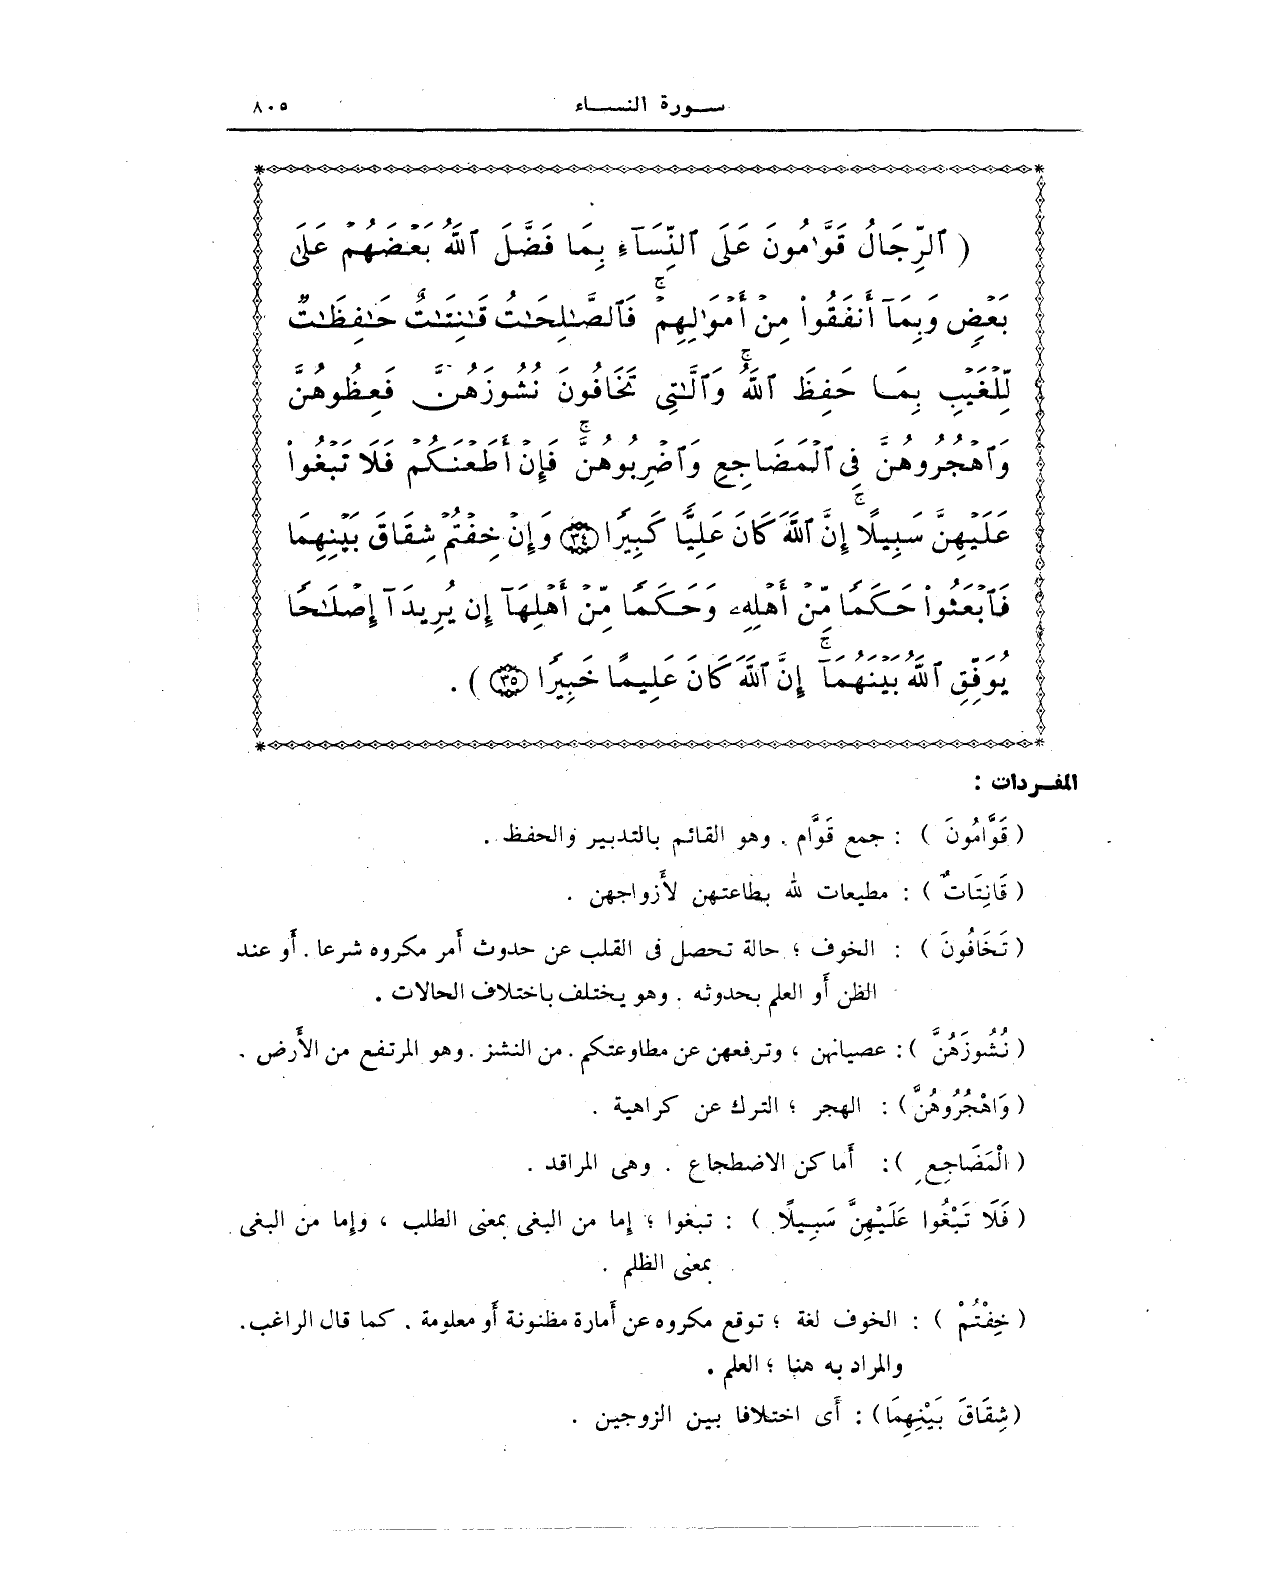 سورة النساء ٨٠٥
( ٱلرِّجَالُ قَوَّٰمُونَ عَلَى ٱلنِّسَآءِ بِمَا فَضَّلَ ٱللَّهُ بَعْضَهُمْ عَلَىٰ
بَعْضٍ وَبِمَآ أَنفَقُوا۟ مِنْ أَمْوَٰلِهِمْ ۚ فَٱلصَّٰلِحَٰتُ قَٰنِتَٰتٌ حَٰفِظَٰتٌ
لِّلْغَيْبِ بِمَا حَفِظَ ٱللَّهُ ۚ وَٱلَّٰتِى تَخَافُونَ نُشُوزَهُنَّ فَعِظُوهُنَّ
وَٱهْجُرُوهُنَّ فِى ٱلْمَضَاجِعِ وَٱضْرِبُوهُنَّ ۚ فَإِنْ أَطَعْنَكُمْ فَلَا تَبْغُوا۟
عَلَيْهِنَّ سَبِيلًا ۚ إِنَّ ٱللَّهَ كَانَ عَلِيًّا كَبِيرًا ﴿٣٤﴾ وَإِنْ خِفْتُمْ شِقَاقَ بَيْنِهِمَا
فَٱبْعَثُوا۟ حَكَمًا مِّنْ أَهْلِهِۦ وَحَكَمًا مِّنْ أَهْلِهَآ إِن يُرِيدَآ إِصْلَٰحًا
يُوَفِّقِ ٱللَّهُ بَيْنَهُمَآ ۚ إِنَّ ٱللَّهَ كَانَ عَلِيمًا خَبِيرًا ﴿٣٥﴾ ) .
المفردات :
( قَوَّامُونَ ) : جمع قَوَّام . وهو القائم بالتدبير والحفظ .
( قَانِتَاتٌ ) : مطيعات لله بطاعتهن لأزواجهن .
( تَخَافُونَ ) : الخوف ؛ حالة تحصل فى القلب عن حدوث أمر مكروه شرعا . أو عند
الظن أو العلم بحدوثه . وهو يختلف باختلاف الحالات .
( نُشُوزَهُنَّ ) : عصيانهن ؛ وترفعهن عن مطاوعتكم . من النشز . وهو المرتفع من الأرض .
( وَاهْجُرُوهُنَّ ) : الهجر ؛ الترك عن كراهية .
( الْمَضَاجِعِ ) : أماكن الاضطجاع . وهى المراقد .
( فَلَا تَبْغُوا عَلَيْهِنَّ سَبِيلًا ) : تبغوا ؛ إما من البغى بمعنى الطلب ، وإما من البغى
بمعنى الظلم .
( خِفْتُمْ ) : الخوف لغة ؛ توقع مكروه عن أمارة مظنونة أو معلومة . كما قال الراغب .
والمراد به هنا ؛ العلم .
( شِقَاقَ بَيْنِهِمَا ) : أى اختلافا بين الزوجين .